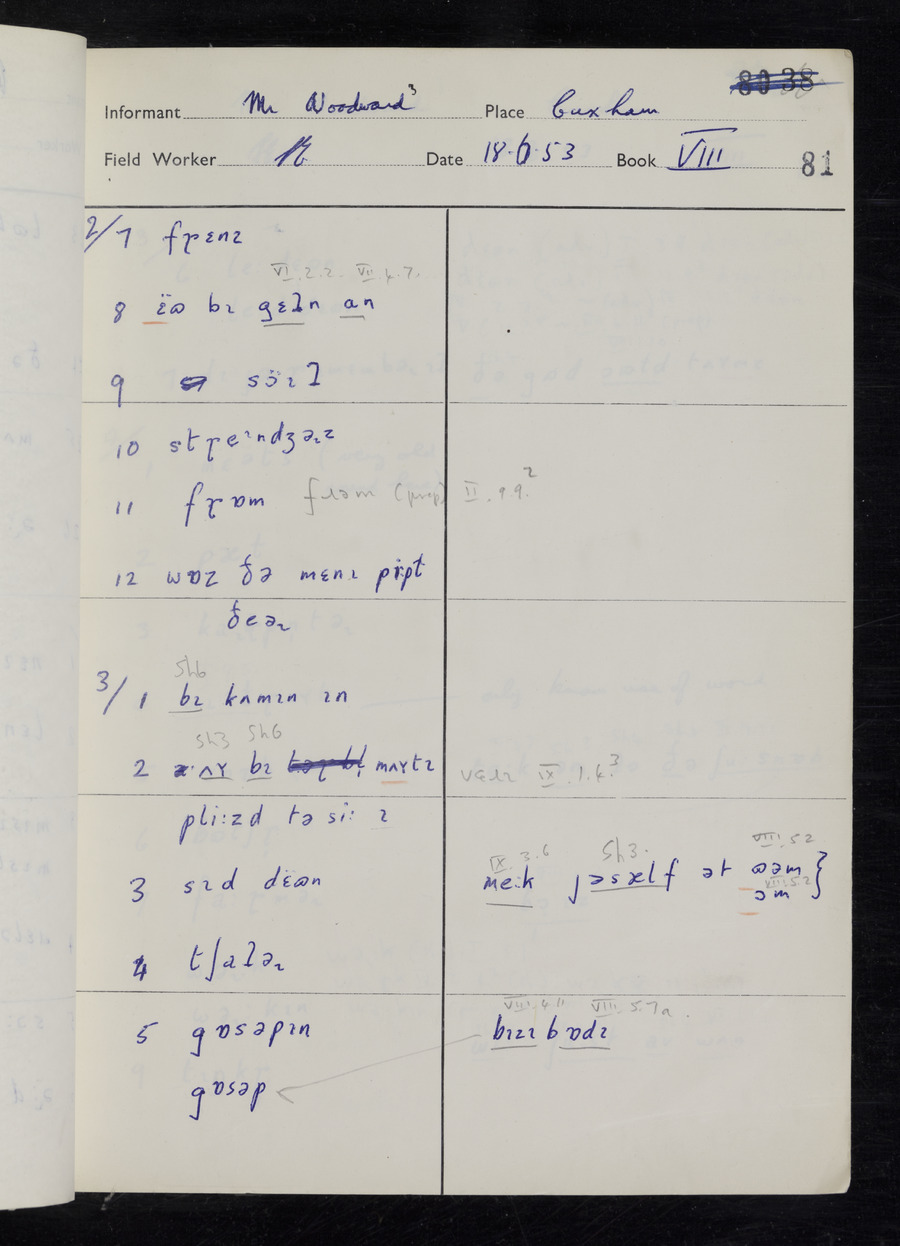 80 38
Informant Mr Woodward³ Place Cuxham
Field Worker Date 18.6.53 Book VIII 81
2/7 fɽɛnz
VI.2.2. VII.4.7.
8 ɛ̈ɷ bɪ gɛɫn an
9 sɔ̈ɪɫ
10 stɽeɪndʒəɽz
11 fɽɒm fɹəm (prep) II.9.9.²
12 wɒz ðə mɛnɪ pi:pt
ðeəɽ
Sh6
3/1 bɪ kʌmɪn ɪn
Sh3 Sh6
2 ʌɤ bɪ mʌɤtɪ vɛɹɪ IX.1.4.³
pli:zd tə si: ɪ
VIII.5.2
IX.3.6 Sh3.
3 sɪd dɛ̈ɷn me:k jəsælf ət ɷəm }
VIII.5.2
ɔm
4 tʃaɫəɽ
VIII.4.11 VIII.5.7a.
5 gɒsəpɪn bɪzɪ bɒdɪ
gɒsəp